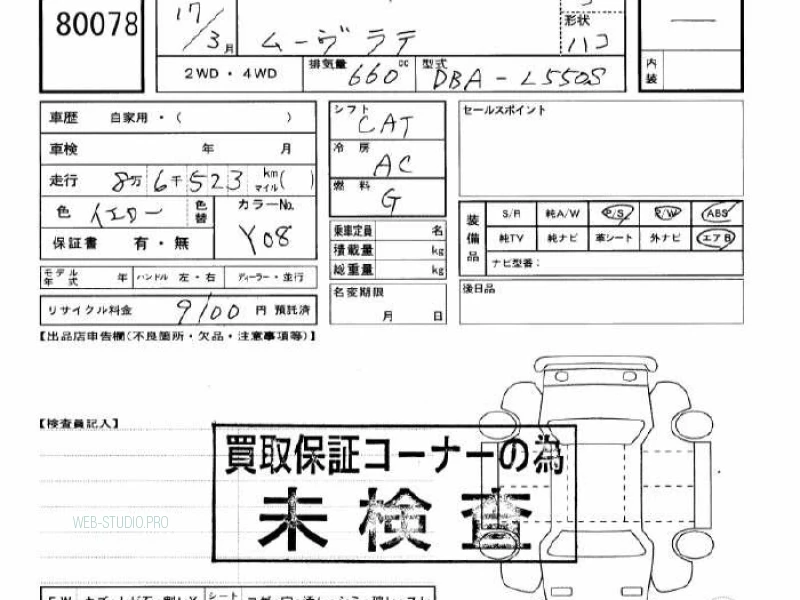 80078
17/3月
ムーヴラテ
形状
ハコ
内装
2WD・4WD
排気量 660 cc
型式 DBA-L550S
車歴 自家用・( )
車検 年 月
走行 8万6千523 km マイル( )
色 イエロー 色替
カラーNo. Y08
保証書 有・無
シフト CAT
冷房 AC
燃料 G
セールスポイント
乗車定員 名
積載量 kg
総重量 kg
装備品
S/R 純A/W P/S P/W ABS
純TV 純ナビ 革シート 外ナビ エアB
ナビ型番:
モデル年式 年 ハンドル 左・右 ディーラー・並行
名変期限
月 日
後日品
リサイクル料金 9100 円 預託済
【出品店申告欄(不良箇所・欠品・注意事項等)】
【検査員記入】
買取保証コーナーの為
未検査
WEB-STUDIO.PRO
シート